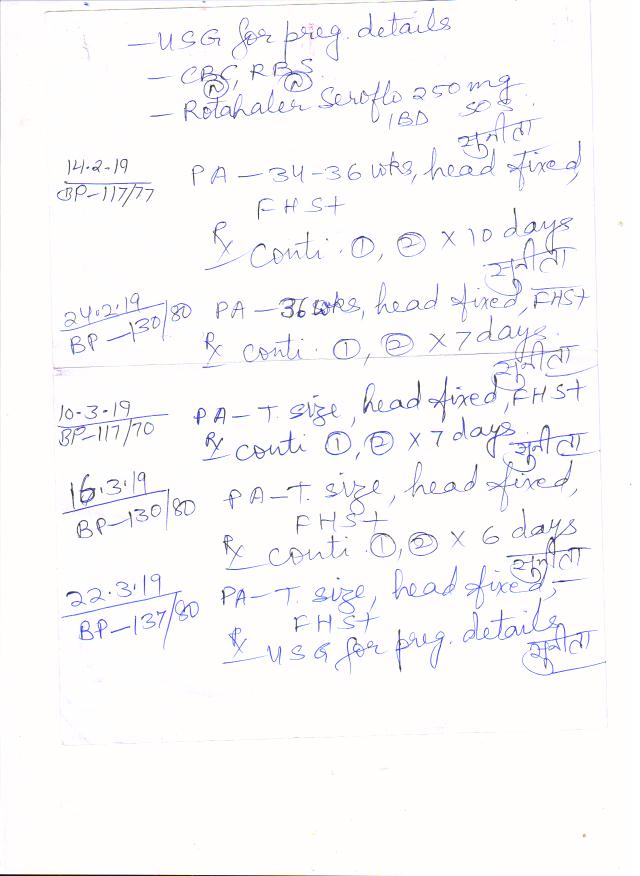 - USG for preg. details
- CBC, RBS
N N
- Rotahaler Seroflo 250 mg
1BD SOS
सुनीता
14.2.19
BP-117/77
PA - 34-36 wks, head fixed,
FHS+
Rx conti. ①, ② x 10 days
सुनीता
24.2.19
BP-130/80
PA - 36 wks, head fixed, FHS+
Rx conti. ①, ② x 7 days.
सुनीता
10.3.19
BP-117/70
PA - T. size, head fixed, FHS+
Rx conti ①, ② x 7 days
सुनीता
16.3.19
BP-130/80
PA - T. size, head fixed,
FHS+
Rx conti. ①, ② x 6 days
सुनीता
22.3.19
BP-137/80
PA - T. size, head fixed,
FHS+
Rx - USG for preg. details
सुनीता